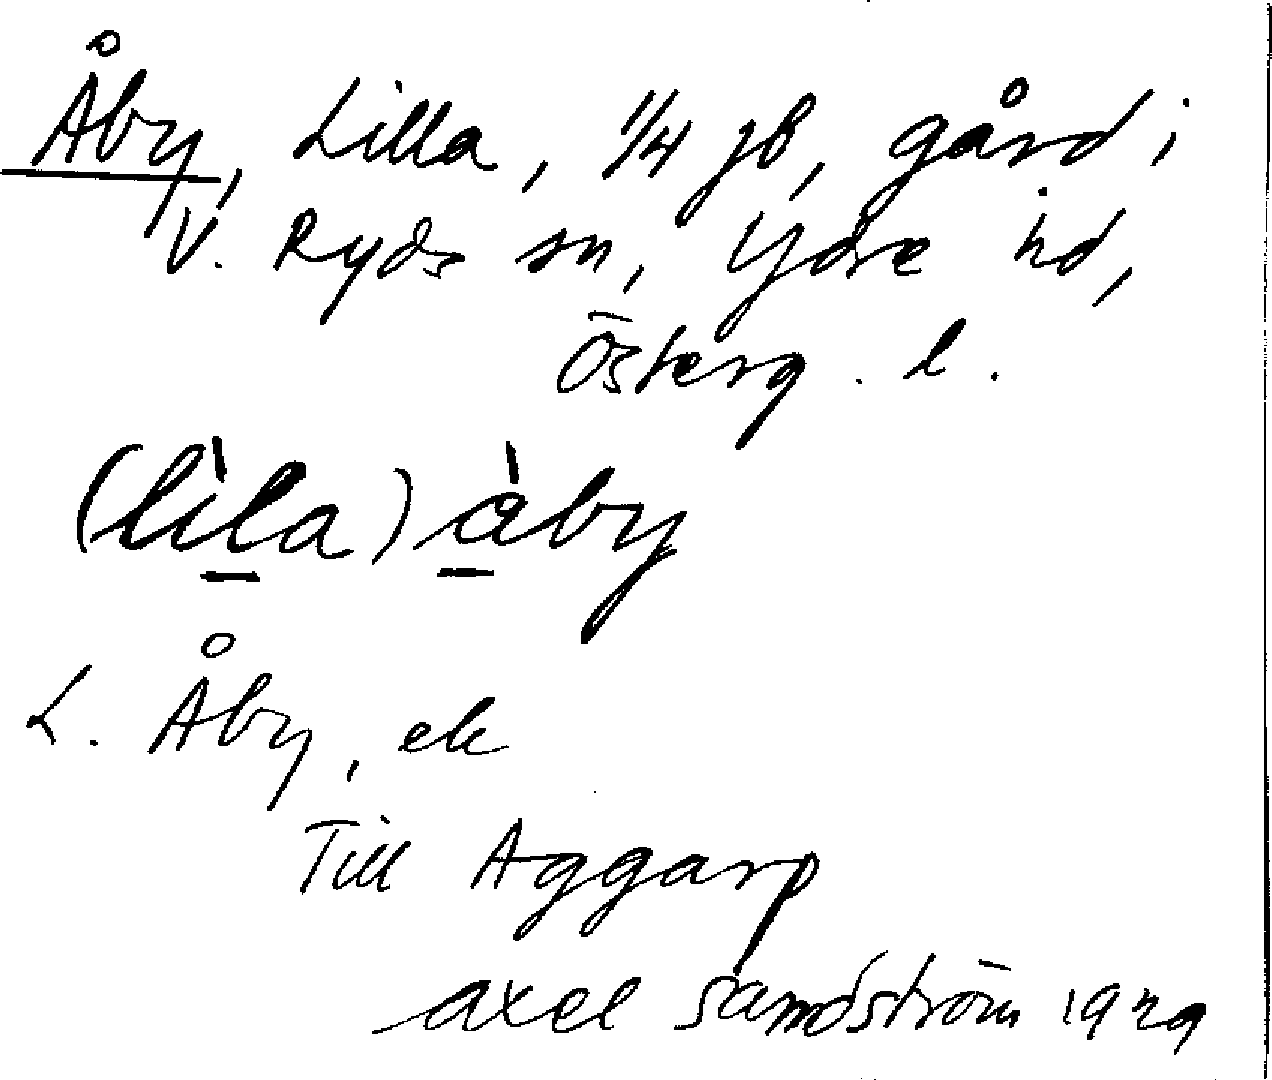 Åby, Lilla, 1/4 jb, gård i
V. Ryds sn, Ydre hd,
Österg. l.
(lìla) àby
L. Åby, ek
Till Aggarp
Axel Sandström 1929